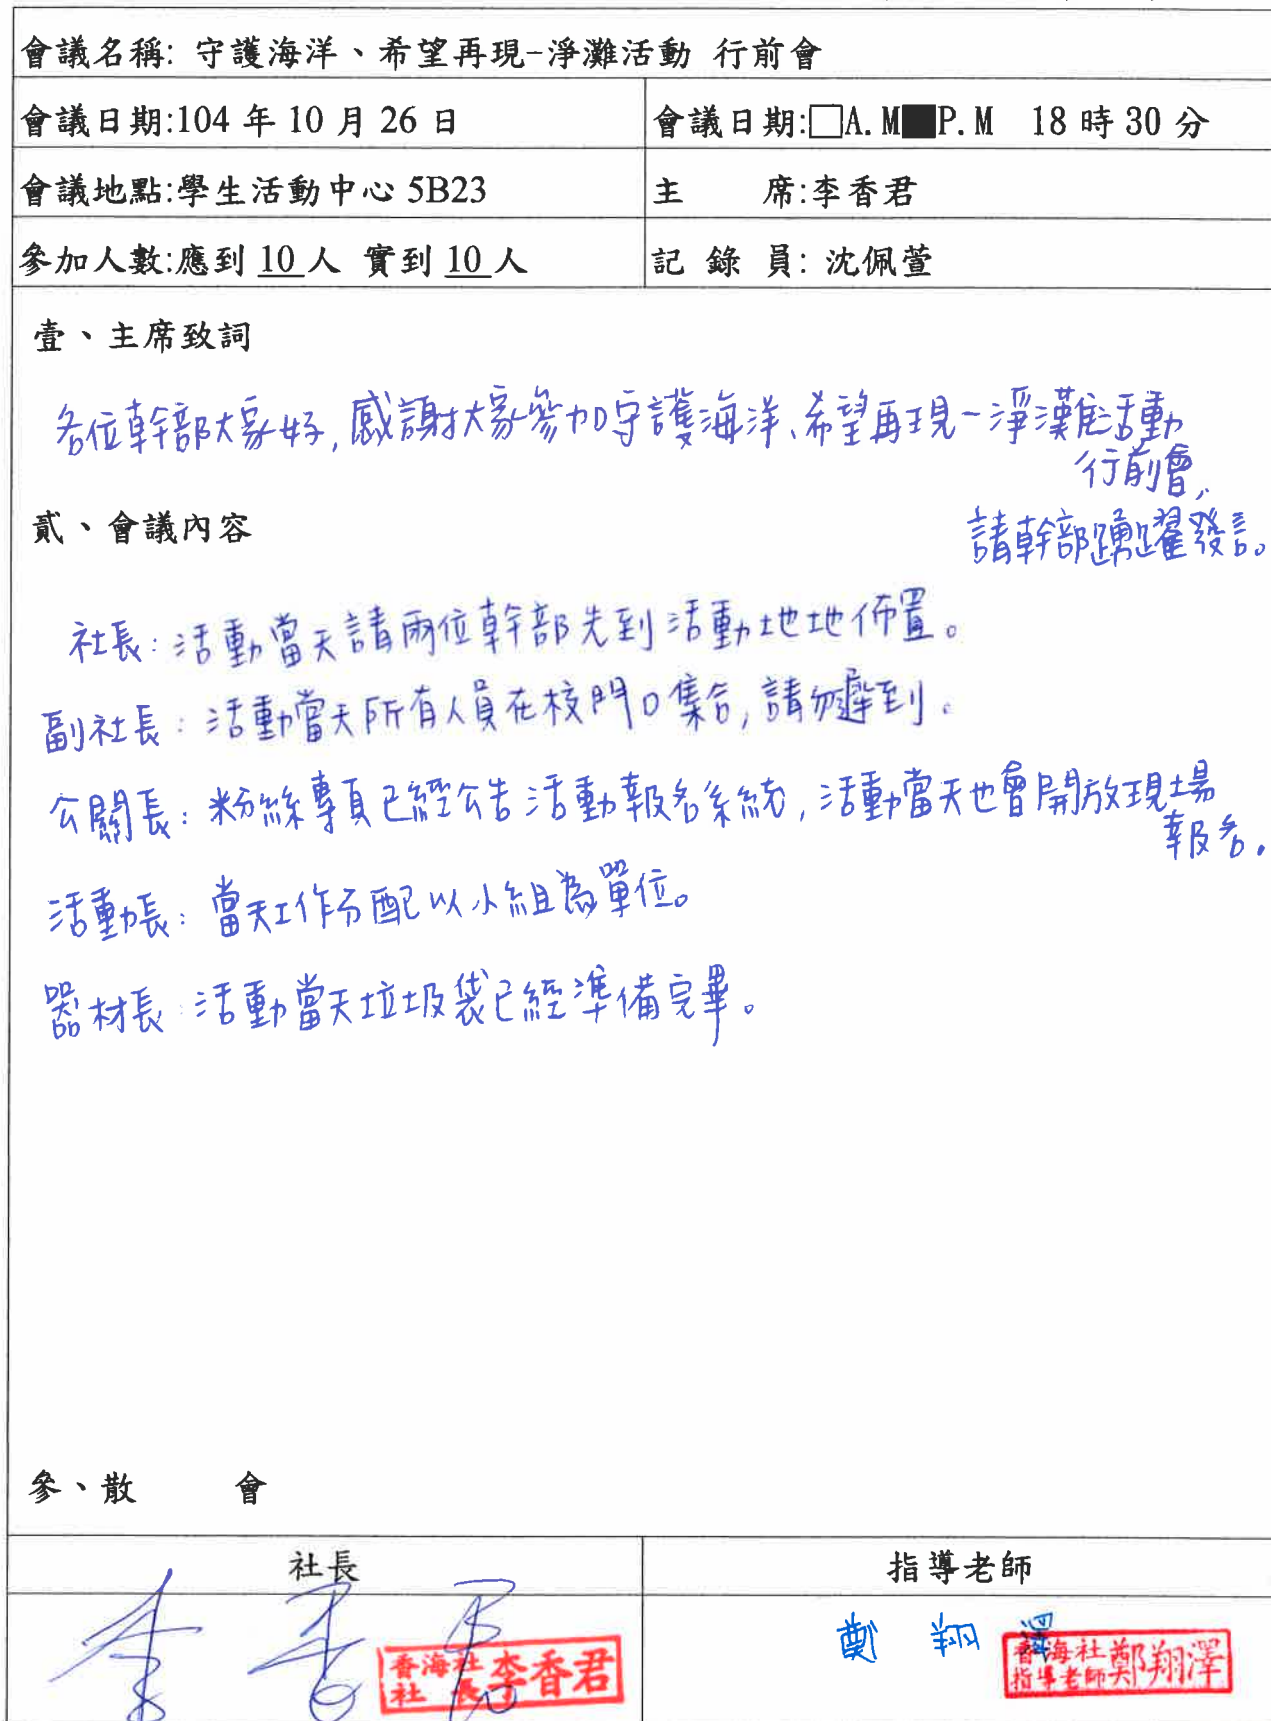 會議名稱: 守護海洋、希望再現-淨灘活動 行前會
會議日期:104 年 10 月 26 日
會議日期:□A.M■P.M 18 時 30 分
會議地點:學生活動中心 5B23
主 席:李香君
參加人數:應到 10 人 實到 10 人
記 錄 員: 沈佩萱
壹、主席致詞
各位幹部大家好,感謝大家參加守護海洋、希望再現-淨灘活動
行前會,
請幹部踴躍發言。
貳、會議內容
社長:活動當天請兩位幹部先到活動地地佈置。
副社長:活動當天所有人員在校門口集合,請勿遲到。
公關長:粉絲專頁已經公告活動報名系統,活動當天也會開放現場
報名。
活動長:當天工作分配以小組為單位。
器材長:活動當天垃圾袋已經準備完畢。
參、散 會
社長
指導老師
李香君
香海社
社長
李香君
鄭翔澤
香海社
指導老師
鄭翔澤